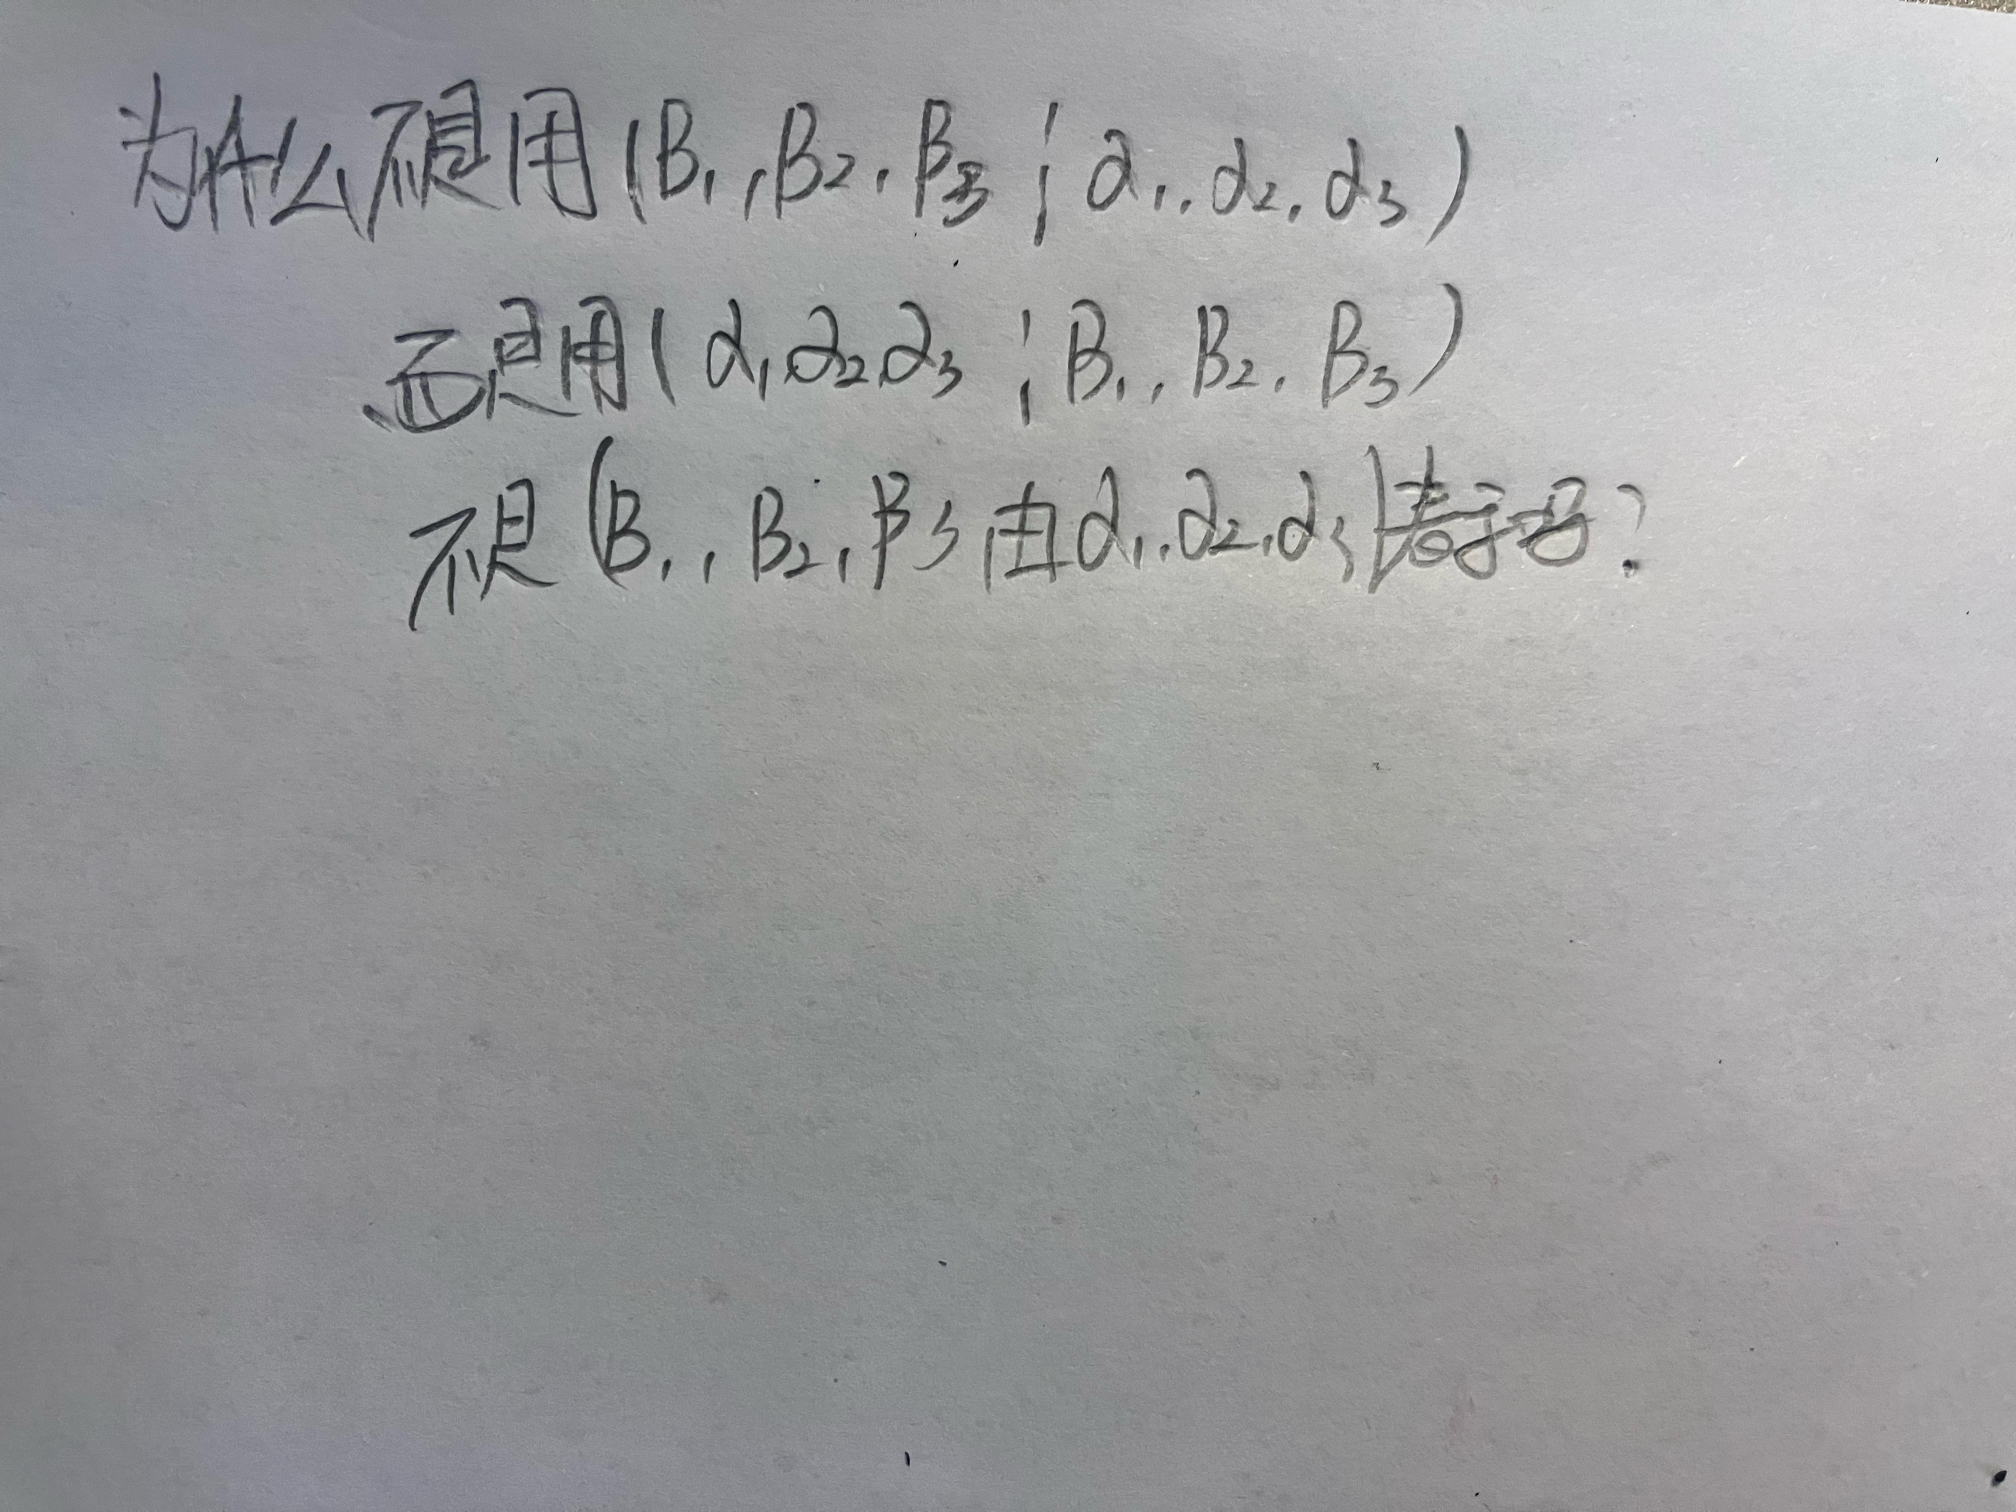 为什么不是用(β₁,,β₂,β₃;α₁,,α₂,α₃)
而是用(α₁α₂α₃;β₁,,β₂,β₃)
不是(β₁,,β₂,β₃由α₁,α₂,α₃)表示吗?